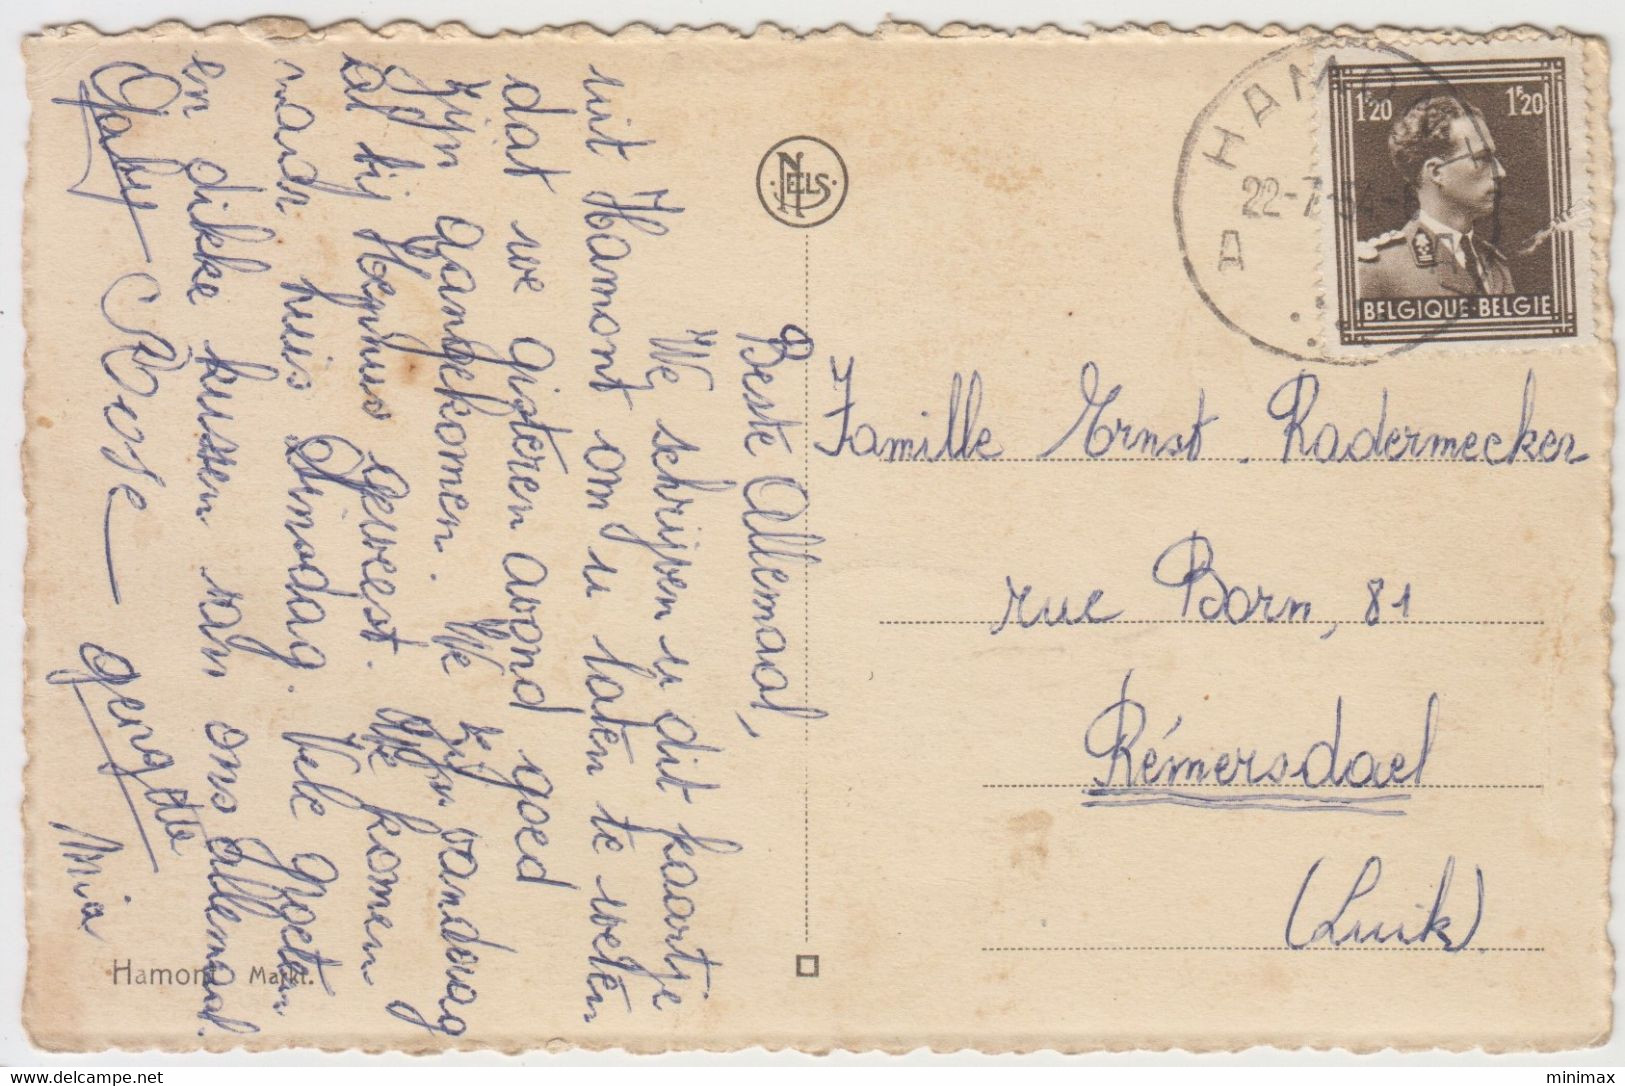 Beste Allemaal,
We schrijven u dit kaartje
uit Hamont om u laten te weten
dat we gisteren avond goed
zijn aangekomen. We zijn vandaag
al bij geweest. We komen
naar huis Dinsdag. Vele groeten
en dikke kussen van ons allemaal.
Gaby Rose Georgette Mia
Hamont Markt.
NELS
HAMO
22-7-54
A A
1F20 1F20
BELGIQUE·BELGIE
Famille Ernst. Radermecker
rue Born, 81
Rémersdael
(Luik)
minimax
www.delcampe.net